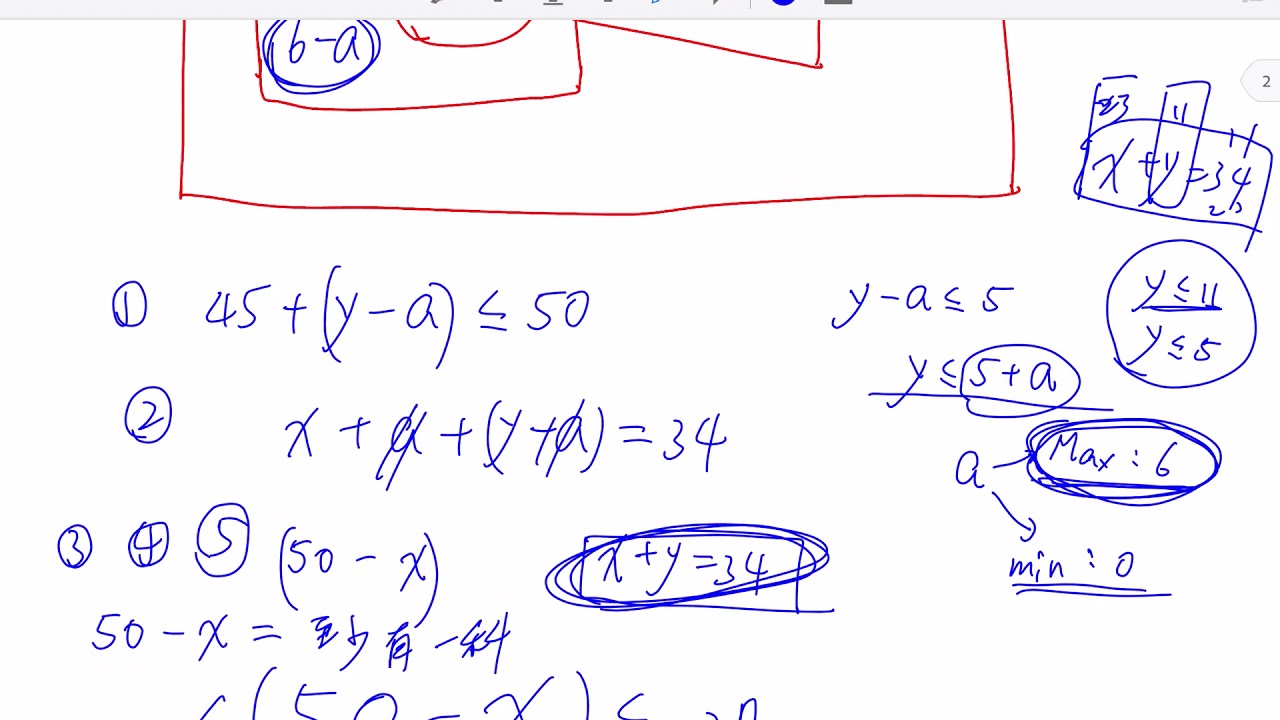 6-a
2
11
x+y=34
① 45+(y-a)≤50
y-a≤5
y≤11
y≤5
y≤5+a
② x+a+(y+a)=34
a
Max:6
min:0
③ ④ ⑤ (50-x)
x+y=34
50-x=至少有一科